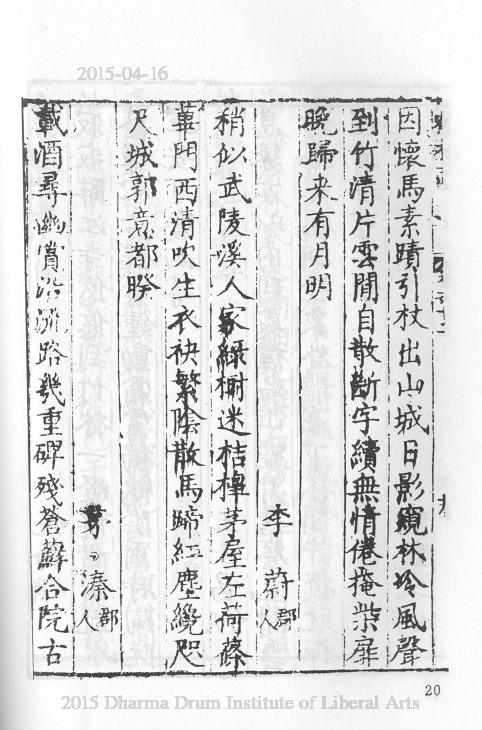 2015-04-16
因懷馬素蹟引杖出山城日影窺林冷風聲
到竹清片雲閒自散斷字續無情倦掩柴扉
晚歸来有月明
李蔚郡人
稍似武陵溪人家綠樹迷桔槹茅屋左荷蕖
華門西清吹生衣袂繁陰散馬蹄紅塵纔咫
尺城郭意都暌
溱郡人
載酒尋幽賞沿流路幾重碑殘蒼蘚合院古
20
2015 Dharma Drum Institute of Liberal Arts